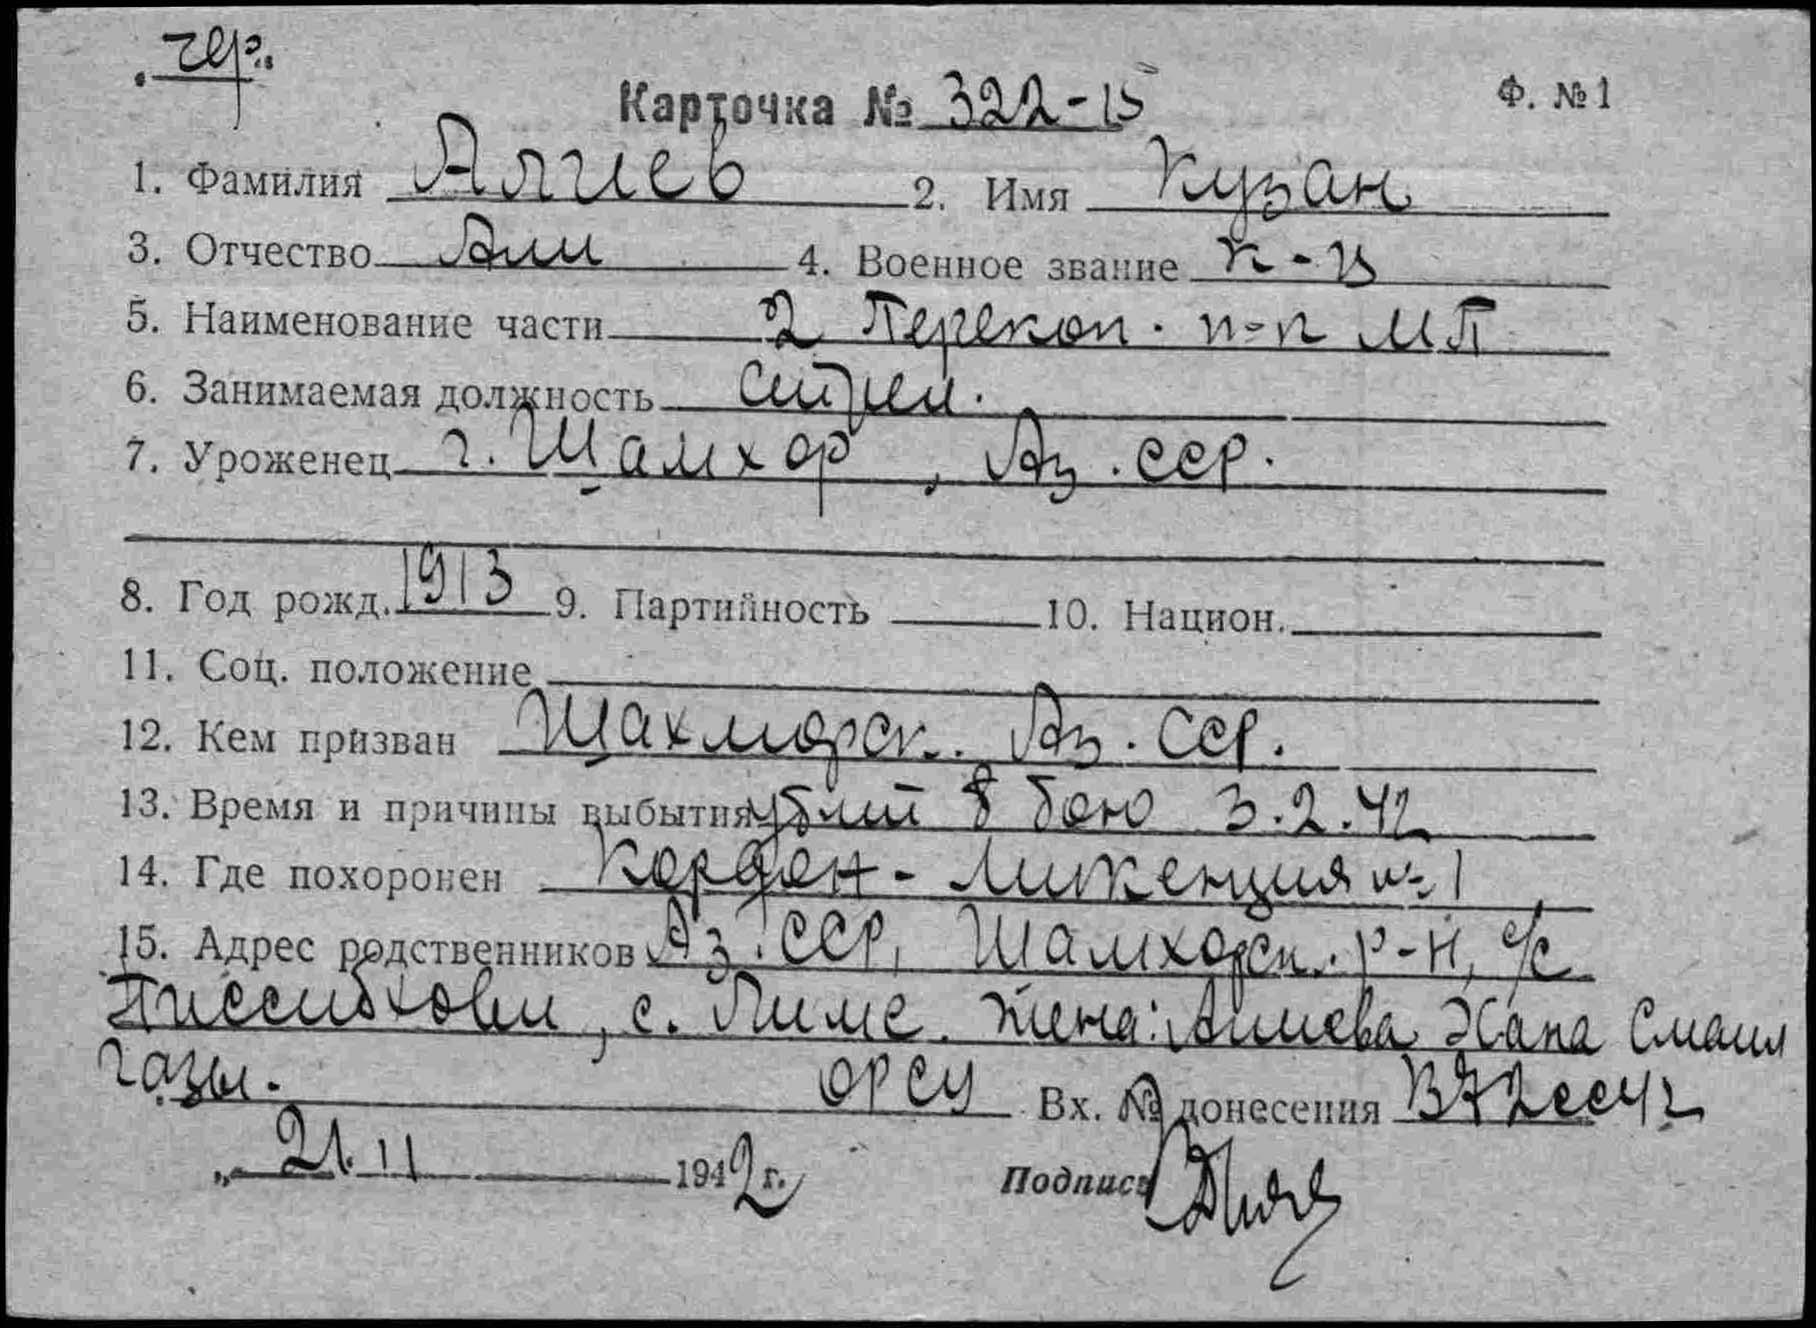 чер.
Карточка № 322-15 Ф. № 1
1. Фамилия Алиев 2. Имя Кузан
3. Отчество Али 4. Военное звание к-ц
5. Наименование части 2 Перекоп. п-п МП
6. Занимаемая должность стрел.
7. Уроженец г. Шамхор, Аз. ССР.
8. Год рожд. 1913 9. Партийность 10. Национ.
11. Соц. положение
12. Кем призван Шахморск. Аз. ССР.
13. Время и причины выбытия убит в бою 3.2.42
14. Где похоронен Кордон- Мекензия № 1
15. Адрес родственников Аз. ССР, Шамхорск. р-н, с/с
с. Жена: Алиева Хапа Смаил
газы. Вх. № донесения
„ 21. 11 1942 г. Подпись